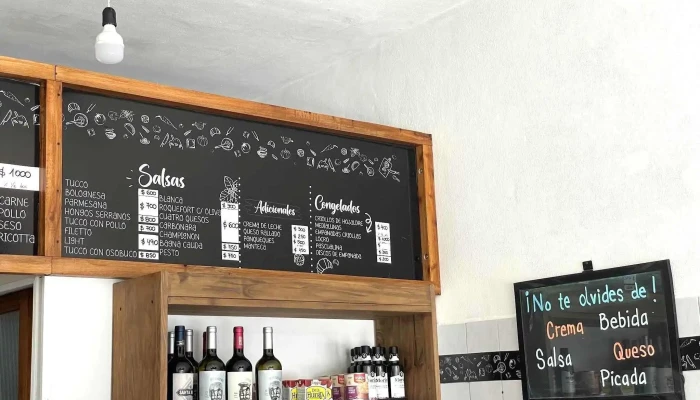 $ 1000
CARNE
POLLO
RICOTTA
Salsas
TUCCO
BOLOGNESA
PARMESANA
HONGOS SERRANOS
TUCCO CON POLLO
FILETTO
LIGHT
TUCCO CON OSOBUCO
$ 600
$ 700
$ 800
$ 700
$ 490
$ 850
BLANCA
ROQUEFORT C/
CUATRO QUESOS
CARBONARA
CHAMPIGNON
BAGNA CAUDA
PESTO
$ 600
$ 750
Adicionales
CREMA DE LECHE
QUESO RALLADO
PANQUEQUES
MANTECA
Congelados
CRIOLLOS DE HOJALDRE
MEDIALUNAS
EMPANADAS CRIOLLAS
LOCRO
PASCUALINA
DISCOS DE EMPANADA
¡No te olvides de!
Crema Bebida
Salsa Queso
Picada